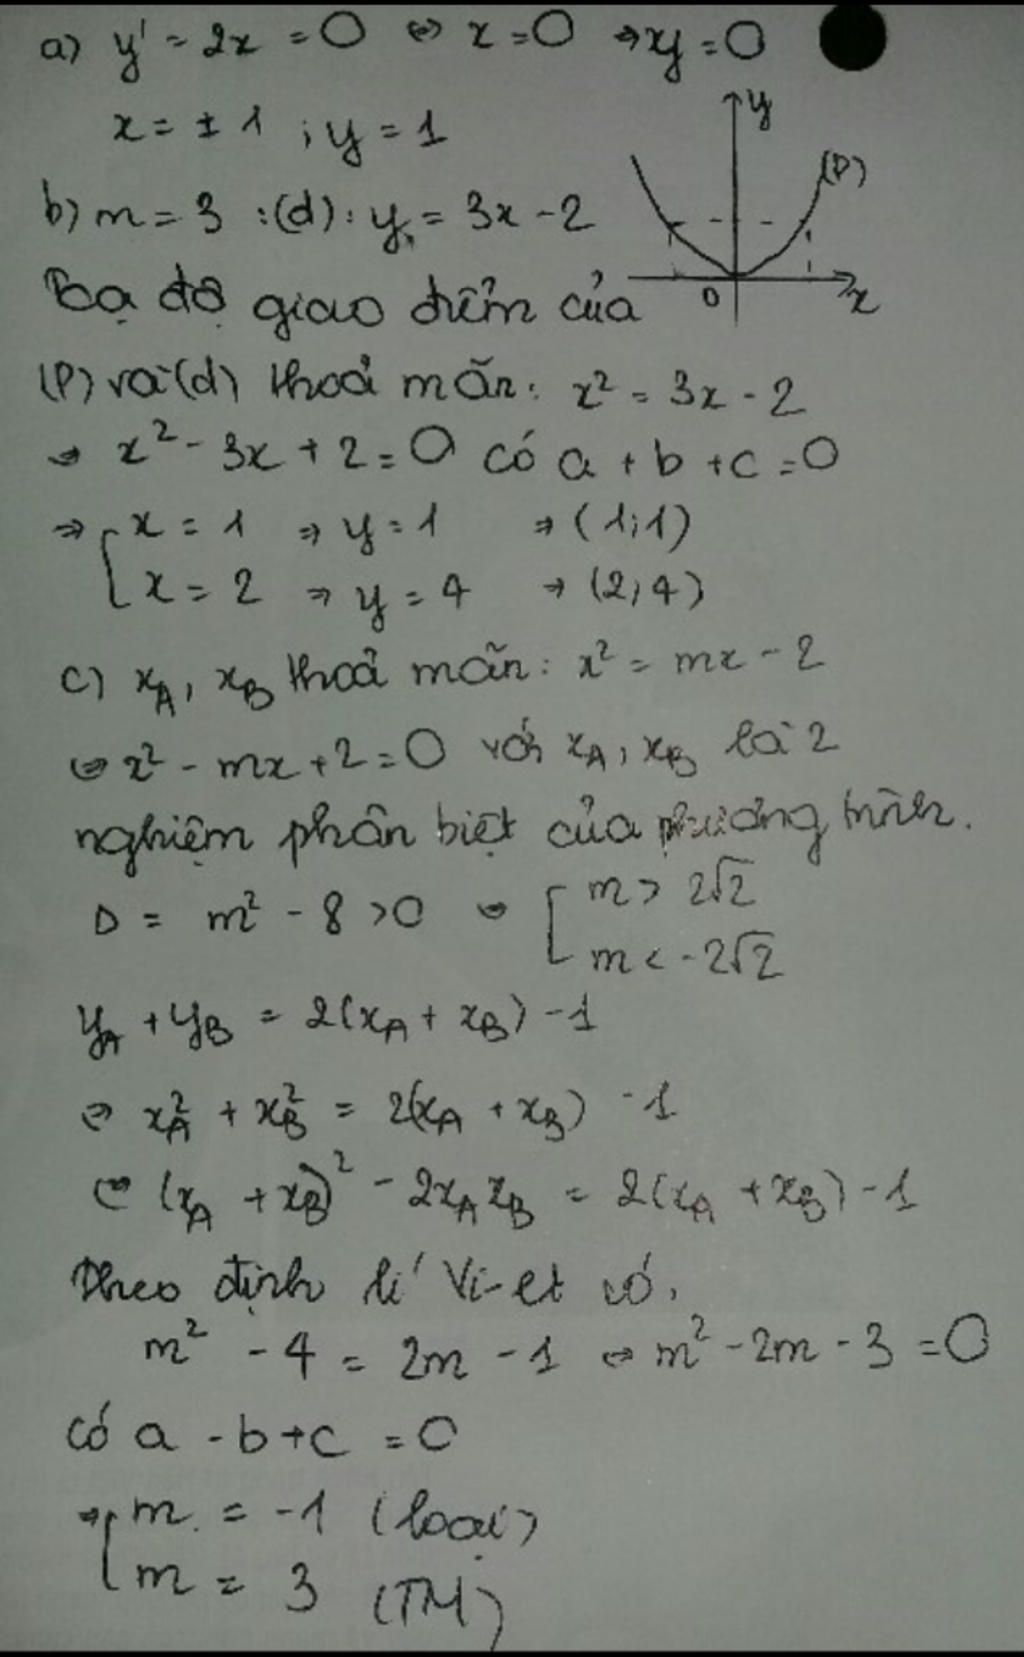 a) y' = 2x = 0 ⇔ x = 0 ⇒ y = 0
x = ± 1 ; y = 1
y
(P)
O
x
b) m = 3 : (d) : y = 3x - 2
Toạ độ giao điểm của
(P) và (d) thoả mãn: x² = 3x - 2
⇒ x² - 3x + 2 = 0 có a + b + c = 0
⇒ [ x = 1 ⇒ y = 1 ⇒ (1;1)
x = 2 ⇒ y = 4 ⇒ (2;4)
c) x_A, x_B thoả mãn: x² = mx - 2
⇔ x² - mx + 2 = 0 với x_A, x_B là 2
nghiệm phân biệt của phương trình.
Δ = m² - 8 > 0 ⇔ [ m > 2√2
m < -2√2
y_A + y_B = 2(x_A + x_B) - 1
⇔ x_A² + x_B² = 2(x_A + x_B) - 1
⇔ (x_A + x_B)² - 2x_A x_B = 2(x_A + x_B) - 1
Theo định lí Vi-et có:
m² - 4 = 2m - 1 ⇔ m² - 2m - 3 = 0
có a - b + c = 0
⇒ [ m = -1 (loại)
m = 3 (TM)